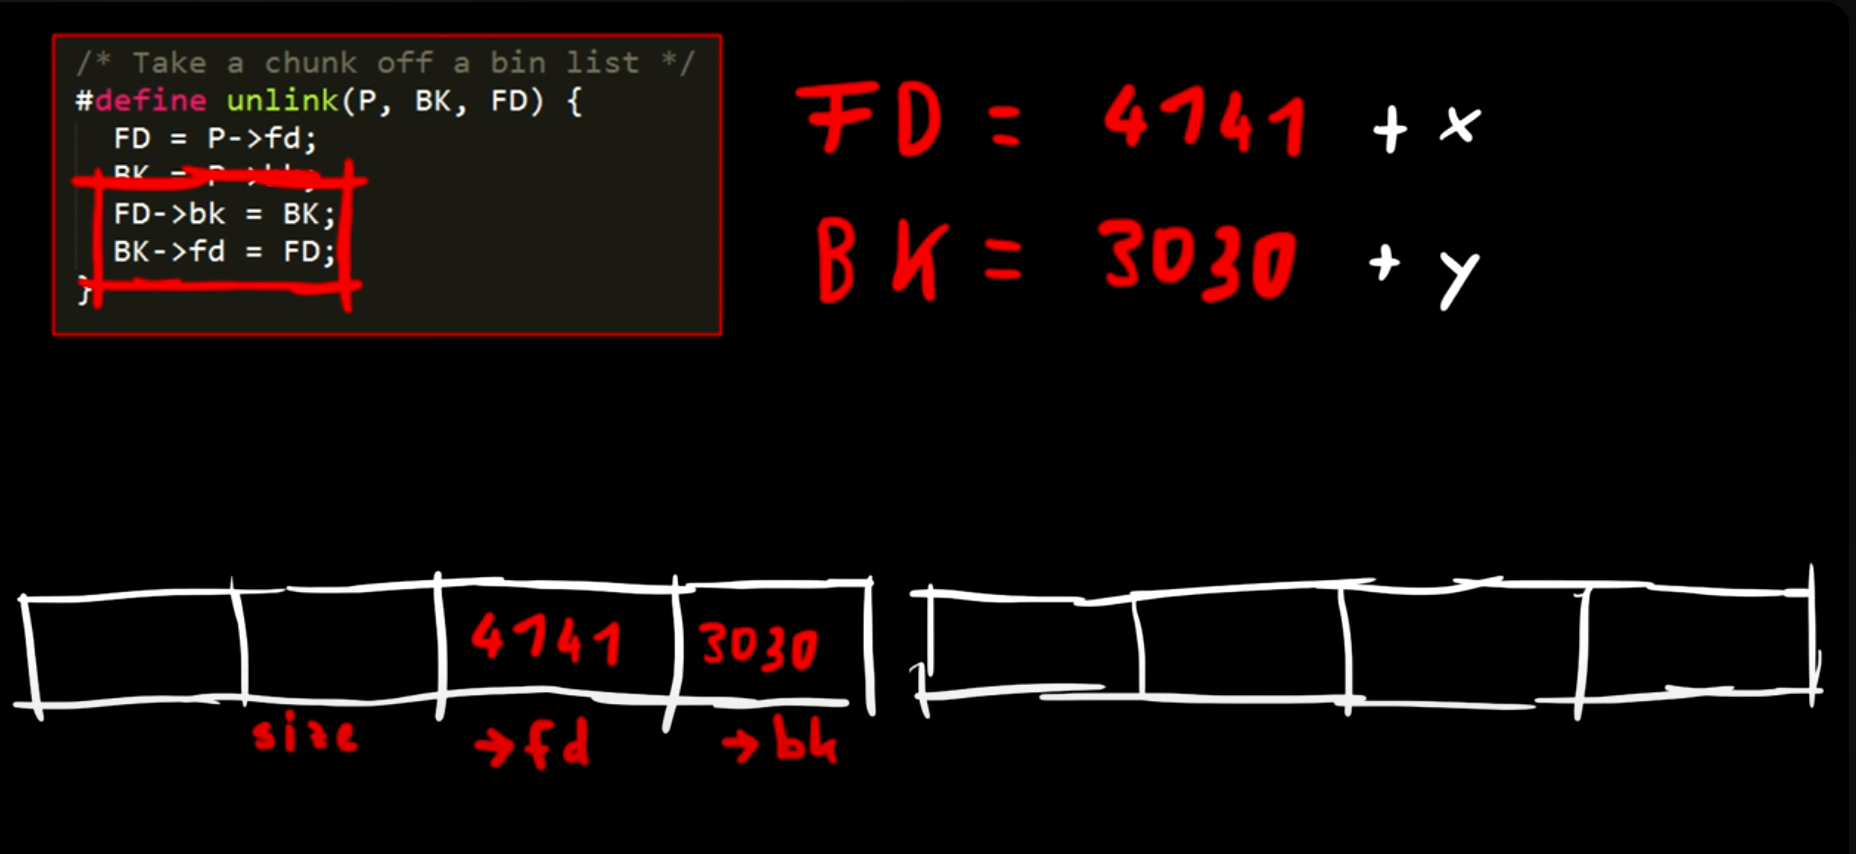 /* Take a chunk off a bin list */
#define unlink(P, BK, FD) {
FD = P->fd;
BK = P->bk;
FD->bk = BK;
BK->fd = FD;
}
FD = 4141 + x
BK = 3030 + y
4141 3030
size →fd →bk